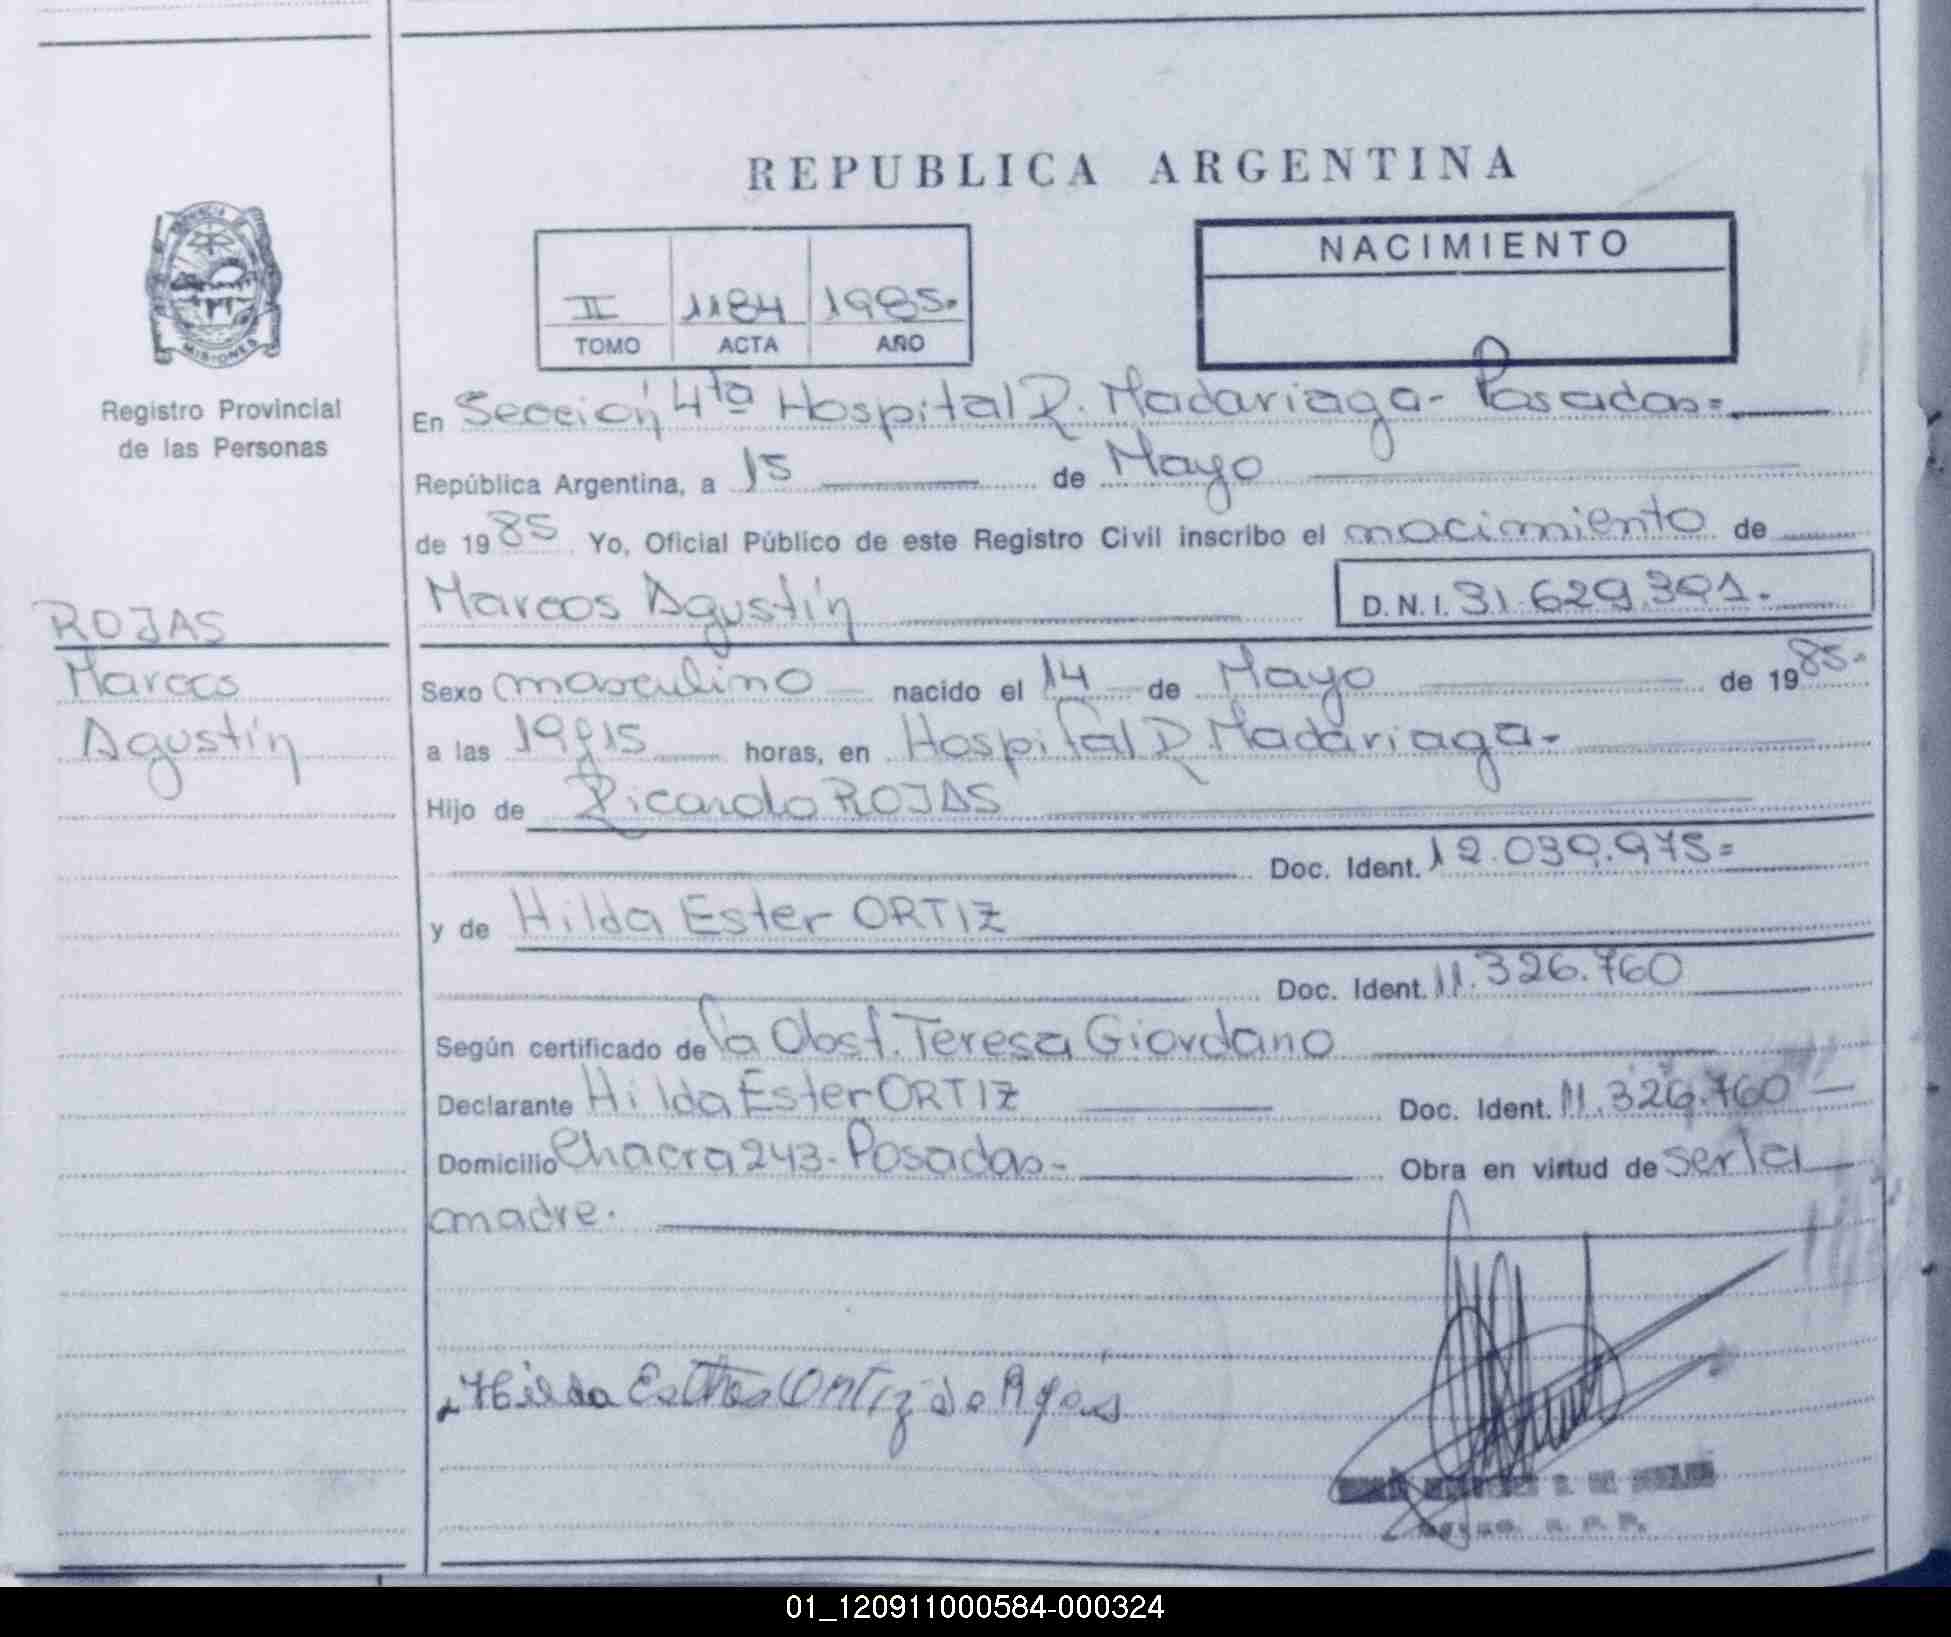 REPUBLICA ARGENTINA
PROVINCIA DE
MISIONES
Registro Provincial
de las Personas
II 1184 1985.
TOMO ACTA AÑO
NACIMIENTO
En Sección 4ta Hospital R. Madariaga - Posadas=
República Argentina, a 15 de Mayo
de 1985 Yo, Oficial Público de este Registro Civil inscribo el nacimiento de
Marcos Agustín D.N.I. 31.629.391.
ROJAS
Marcos
Agustín
Sexo masculino nacido el 14 de Mayo de 1985.
a las 19y15 horas, en Hospital R. Madariaga-
Hijo de Ricardo ROJAS
Doc. Ident. 12.039.975=
y de Hilda Ester ORTIZ
Doc. Ident. 11.326.760
Según certificado de la Obst. Teresa Giordano
Declarante Hilda Ester ORTIZ Doc. Ident. 11.326.760 -
Domicilio Chacra 243- Posadas- Obra en virtud de ser la
madre.
Hilda Esther Ortiz de
01_120911000584-000324